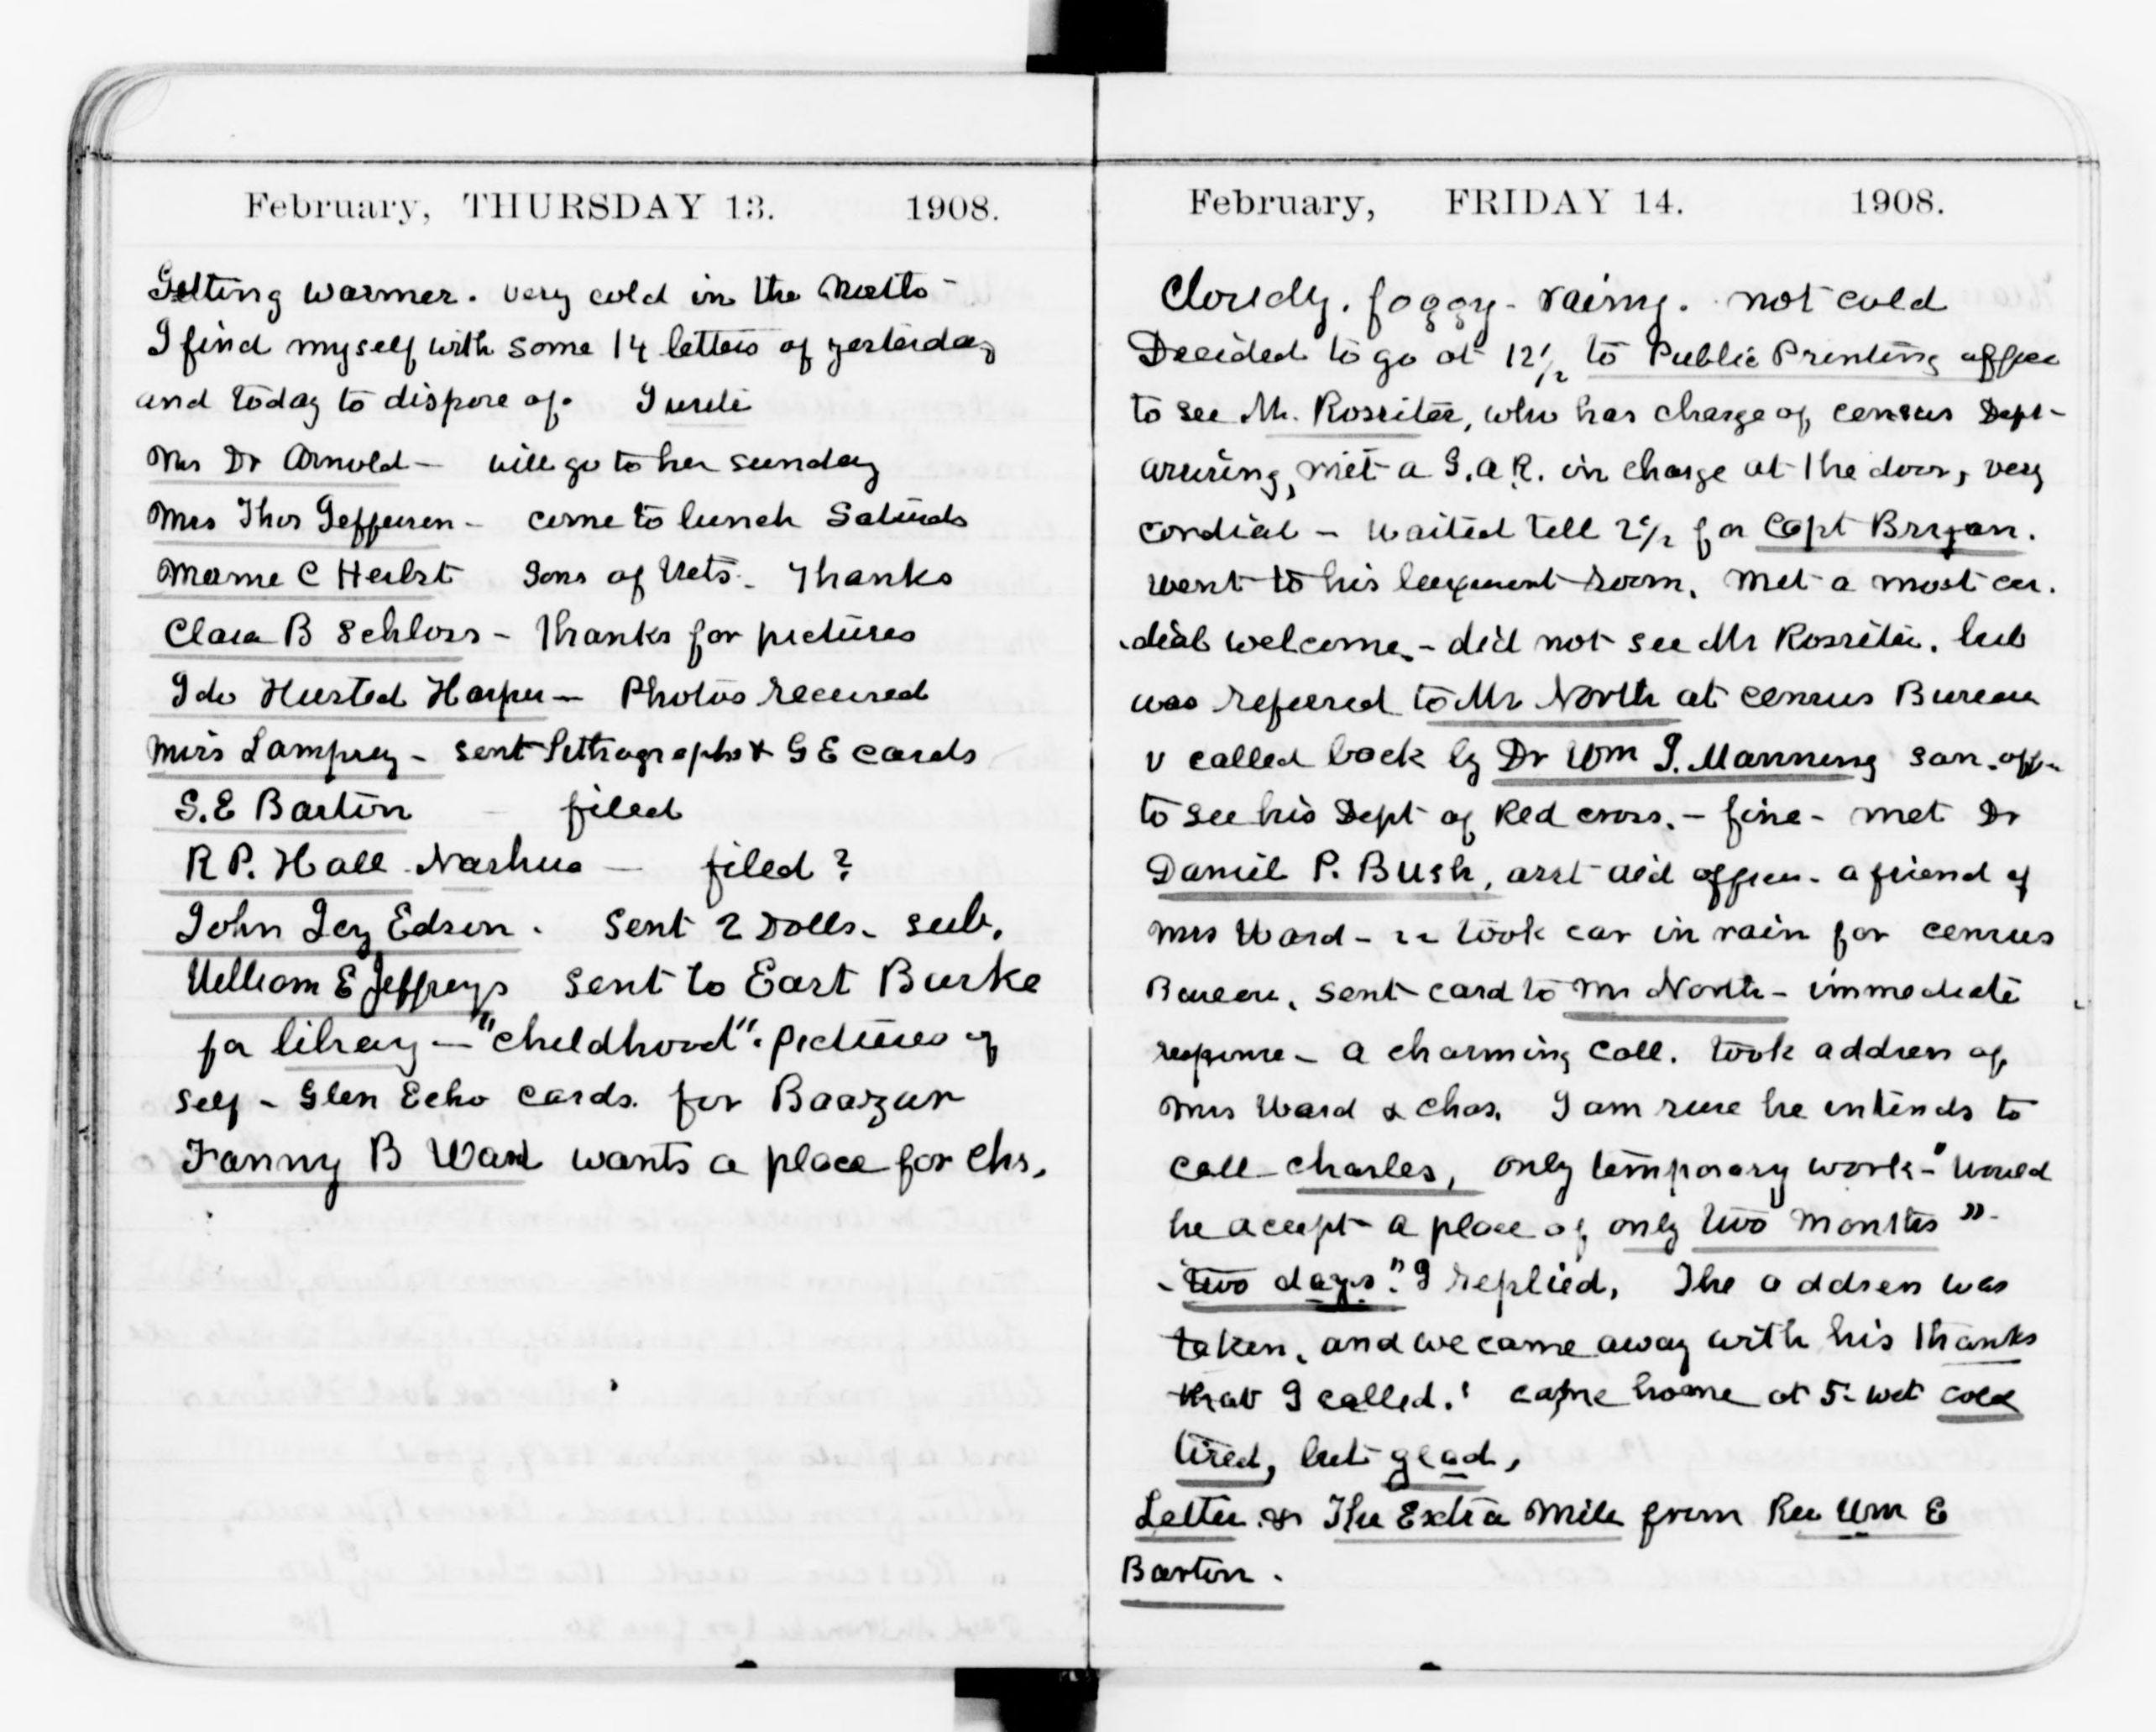 February, THURSDAY 13. 1908.
Getting warmer. very cold in the North -
I find myself with some 14 letters of yesterday
and today to dispose of. I write
Mrs Dr Arnold - will go to her sunday
Mrs Thos Jefferson - come to lunch
Mame C Herbst Sons of Vets. Thanks
Clara B Schloss - Thanks for pictures
Ida Husted Harper - Photos received
Miss Lamprey - sent Lithographs & G E cards
S. E Barton - filed
R P. Hall Nashua - filed ?
John Joy Edson. Sent 2 Dolls - sub.
William E Jeffreys sent to East Burke
for library - "childhood". pictures of
self - Glen Echo cards. for Baazar
Fanny B Ward wants a place for Chs.
February, FRIDAY 14. 1908.
Cloudy. foggy - rainy. not cold
Decided to go at 12 1/2 to Public Printing office
to see Mr. Rossiter, who has charge of census Dept -
arriving, met a G. A. R. in charge at the door, very
cordial - waited till 2 1/2 for Capt Bryan.
went to his room. Met a most cor.
dial welcome. - did not see Mr Rossiter. but
was referred to Mr North at census Bureau
v called back by Dr Wm J. Manning San. off.
to see his Dept of Red cross. - fine - met Dr
Daniel P. Bush, asst aid officer. a friend of
Mrs Ward - took car in rain for census
Bureau. sent card to Mr North - immediate
response - a charming call. took address of
Mrs Ward & Chas. I am sure he intends to
call Charles, only temporary work - "Would
he accept a place of only two months" -
- "two days". I replied. The address was
taken, and we came away with his thanks
that I called.' came home at 5 - wet cold
tired, but glad,
Letter & The Extra Mile from Rev Wm E
Barton.